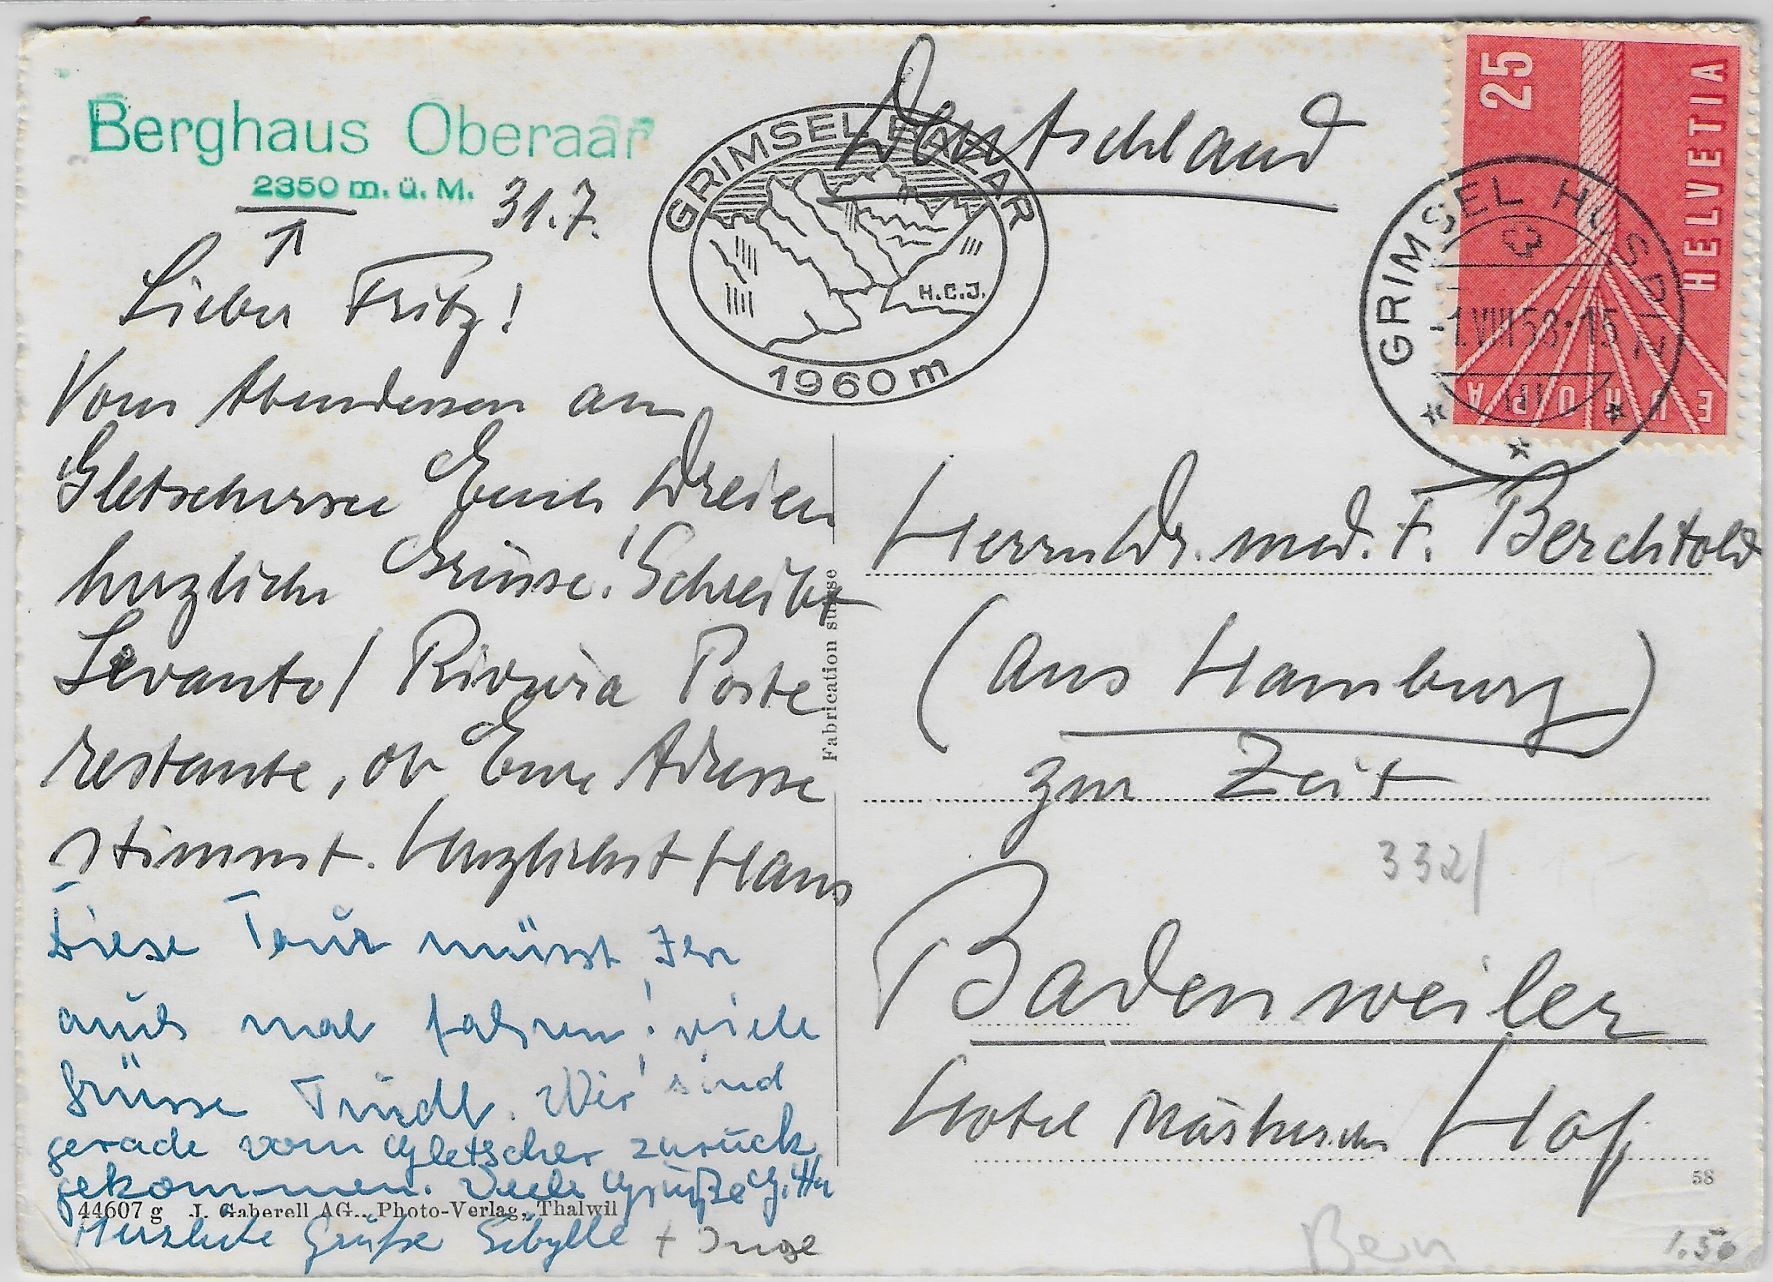 Berghaus Oberaar
2350 m. ü. M.
31.7.
Lieber Fritz!
Vom Abendessen am
Gletschersee Euch Dreien
herzliche Grüsse! Schreibt
Levanto / Riviera Poste
restante, ob Eure Adresse
stimmt. Herzlichst Hans
Diese Tour müsst Ihr
auch mal fahren! viele
Grüsse Trudl. Wir sind
gerade vom Gletscher zurück
gekommen. Viele Grüße Gitta
Herzliche Grüße Sibylle + Inge
44607 g J. Gaberell AG., Photo-Verlag, Thalwil
Fabrication suisse
GRIMSEL
H.C.J.
1960 m
Deutschland
25
HELVETIA
EUROPA
GRIMSEL HOSPIZ
-1.VIII.58.-15
Herrn Dr. med. F. Berchtold
(aus Hamburg)
zur Zeit
332/
Badenweiler
Hotel Märkischer Hof
58
Bern
1.50